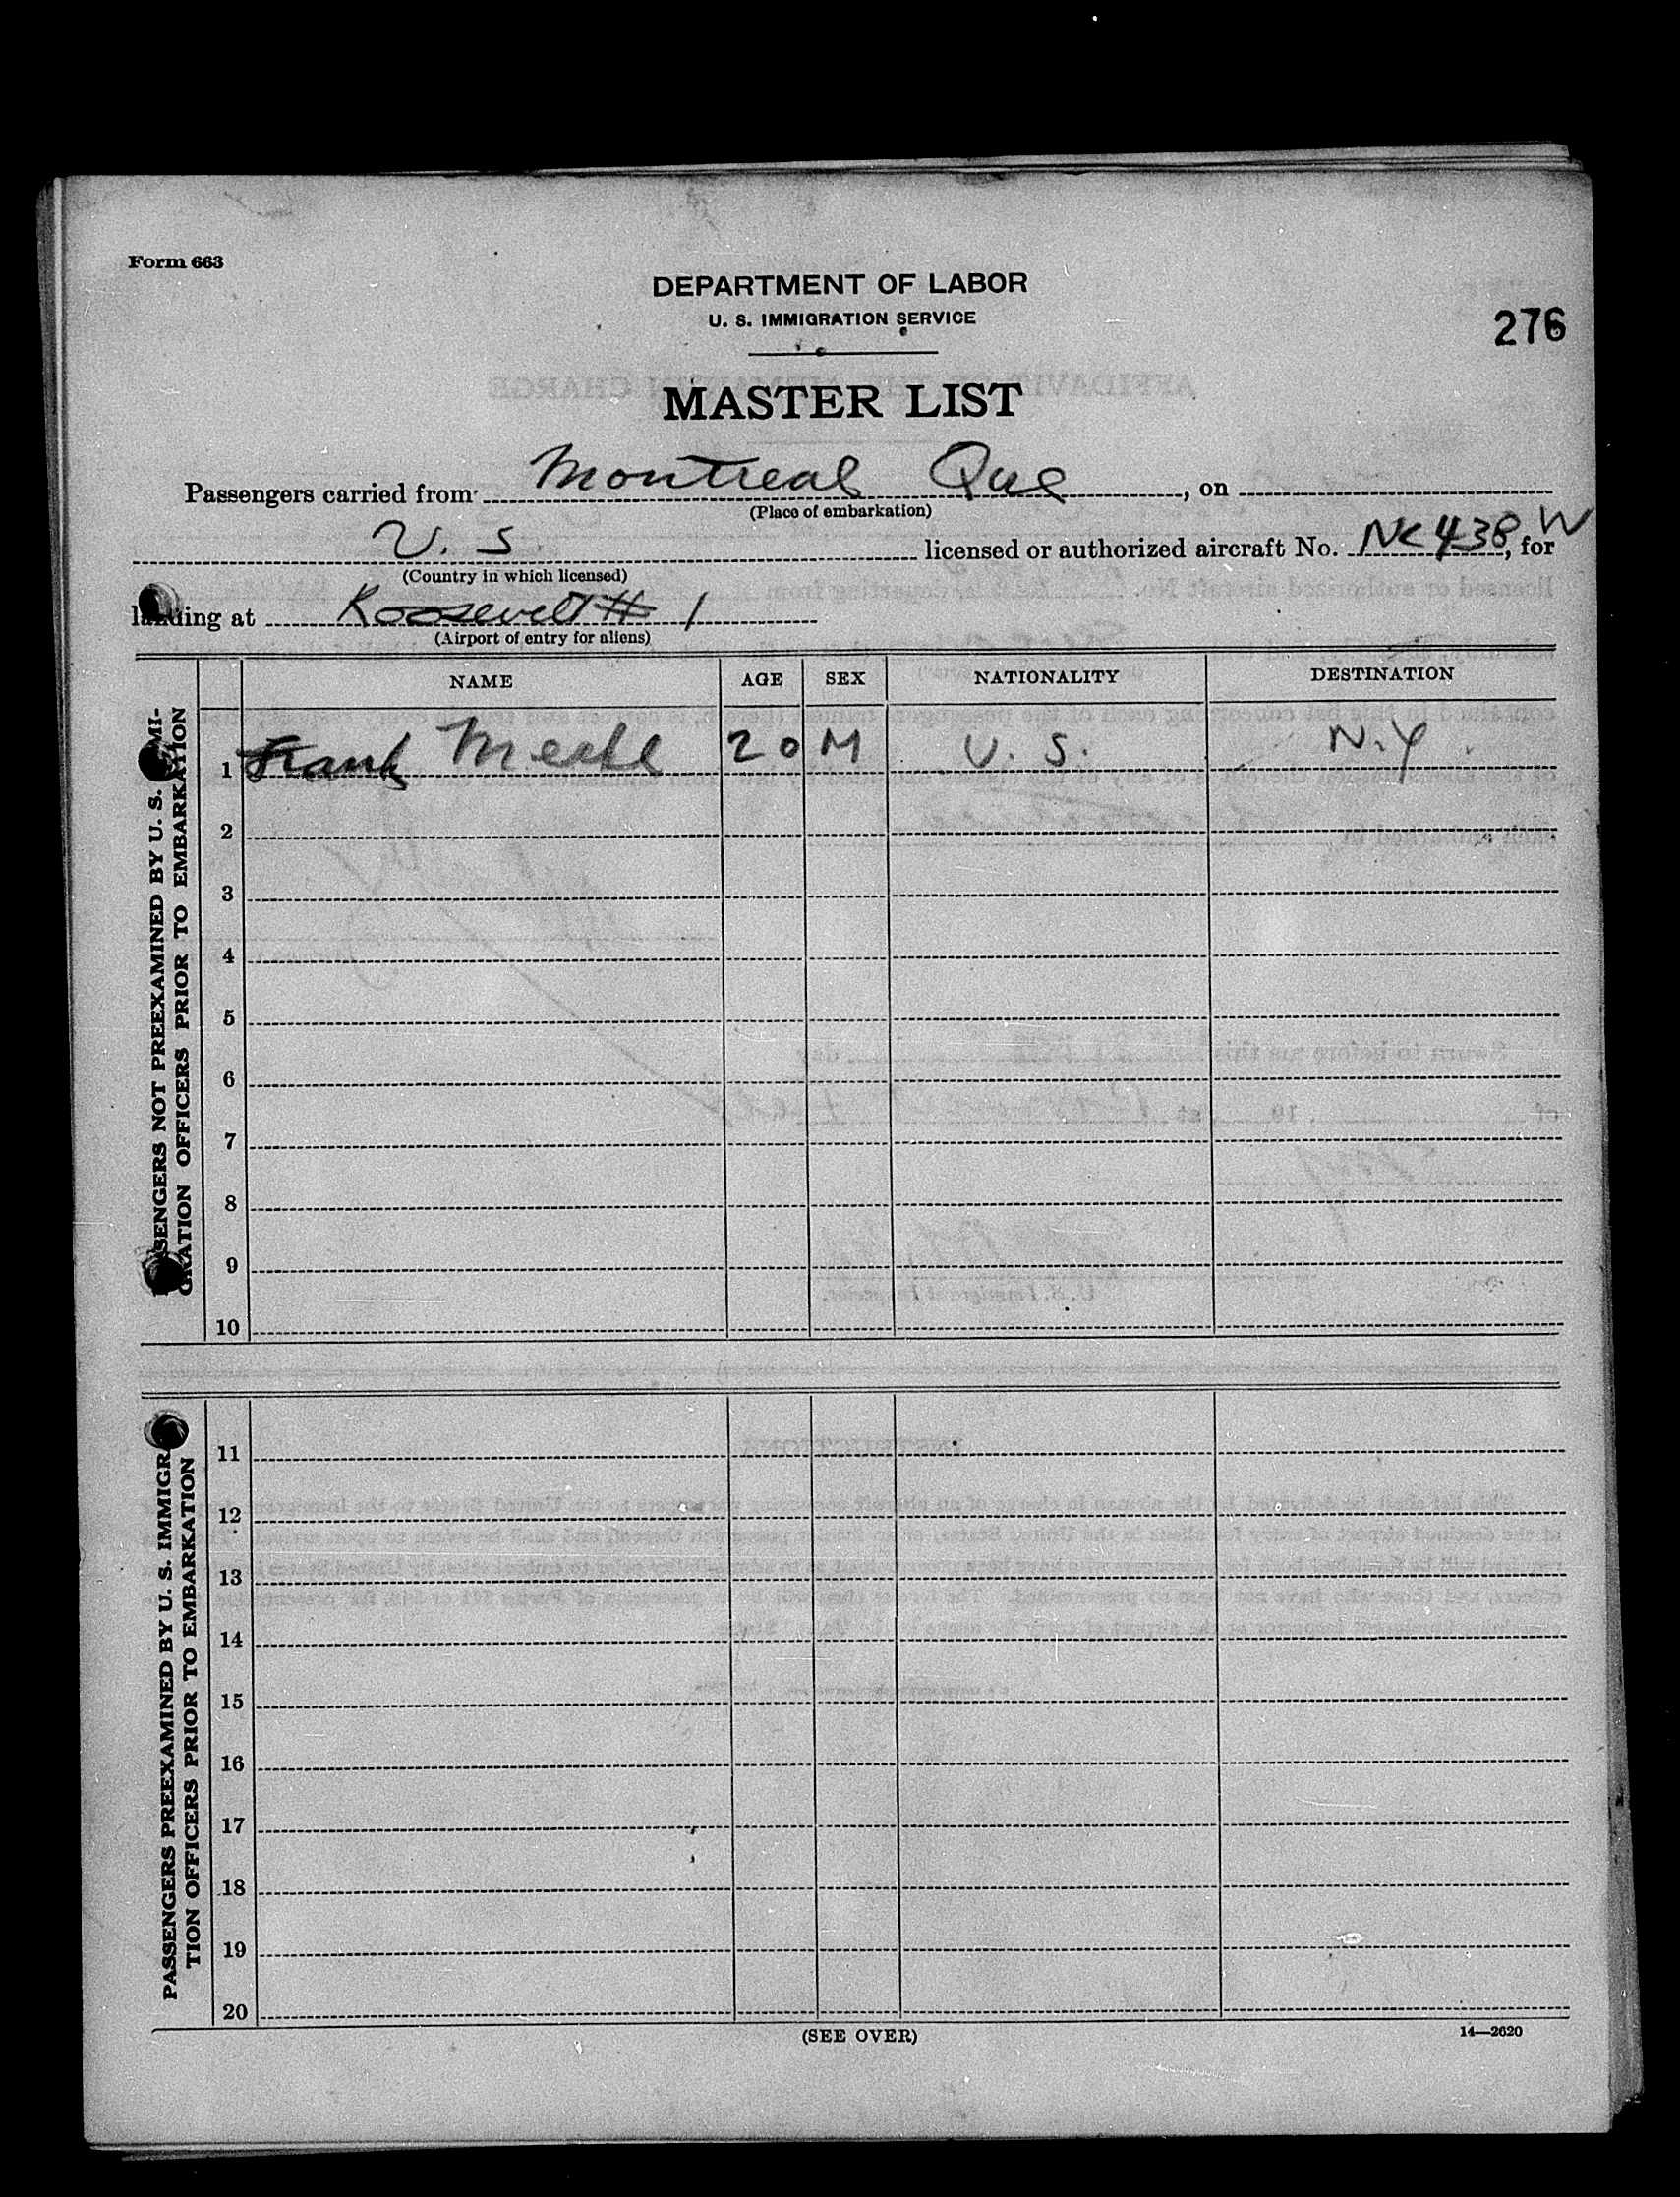 Form 663
DEPARTMENT OF LABOR
U. S. IMMIGRATION SERVICE
276
MASTER LIST
Passengers carried from Montreal Que, on
(Place of embarkation)
U. S licensed or authorized aircraft No. NC 438 W, for
(Country in which licensed)
landing at Roosevelt # 1
(Airport of entry for aliens)
NAME AGE SEX NATIONALITY DESTINATION
SENGERS NOT PREEXAMINED BY U. S. IMMI-
GRATION OFFICERS PRIOR TO EMBARKATION
1 Frank 20 M U. S. N.Y.
2
3
4
5
6
7
8
9
10
PASSENGERS PREEXAMINED BY U. S. IMMIGRA-
TION OFFICERS PRIOR TO EMBARKATION
11
12
13
14
15
16
17
18
19
20
(SEE OVER)
14—2620